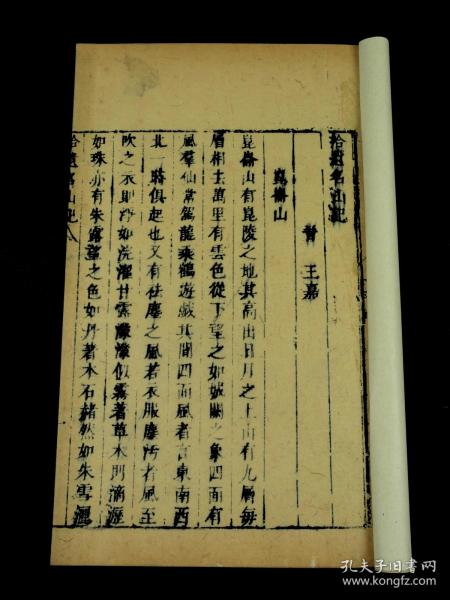 拾遺名山記
晉 王嘉
崑崙山
崑崙山有昆陵之地其高出日月之上山有九層每
層相去萬里有雲色從下望之如城闕之象四面有
風羣仙常駕龍乘鶴遊戲其間四面風者言東南西
北一時俱起也又有祛塵之風若衣服塵汚者風至
吹之衣則淨如浣濯甘露濛濛似霧著草木則滴瀝
如珠亦有朱露望之色如丹著木石赭然如朱雪灑
拾遺名山記 八
孔夫子旧书网
www.kongfz.com